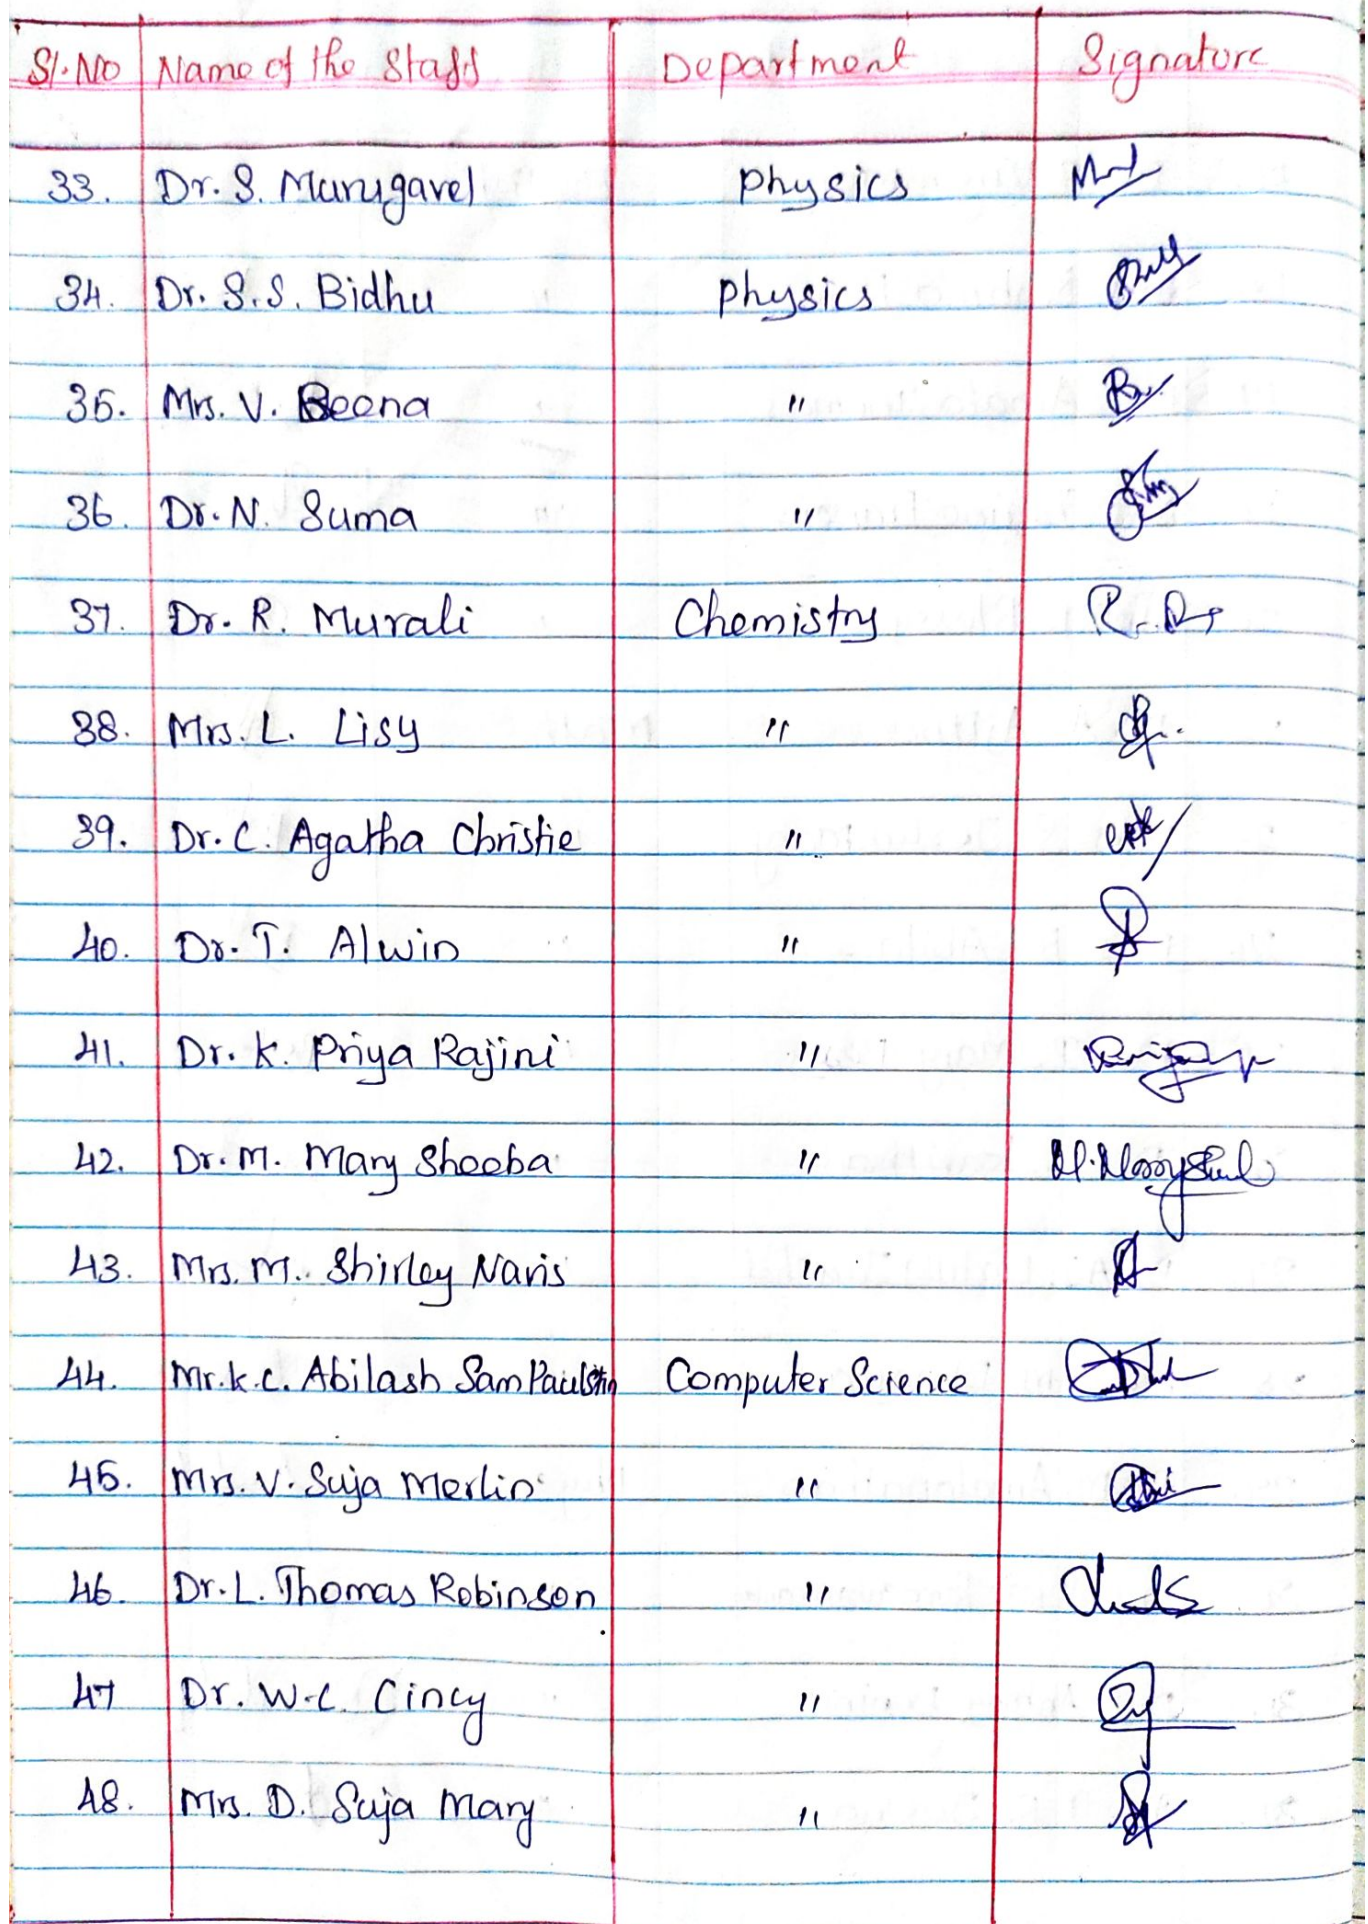 Sl.No Name of the Staff Department Signature
33. Dr. S. Murugavel Physics
34. Dr. S.S. Bidhu Physics
35. Mrs. V. Beena "
36. Dr. N. Suma "
37. Dr. R. Murali Chemistry
38. Mrs. L. Lisy "
39. Dr. C. Agatha Christie "
40. Dr. T. Alwin "
41. Dr. K. Priya Rajini "
42. Dr. M. Mary Sheeba " M. Mary
43. Mrs. M. Shirley Navis "
44. Mr. K.C. Abilash Sam Paulstin Computer Science
45. Mrs. V. Suja Merlin "
46. Dr. L. Thomas Robinson "
47 Dr. W.C. Cincy "
48. Mrs. D. Suja Mary "